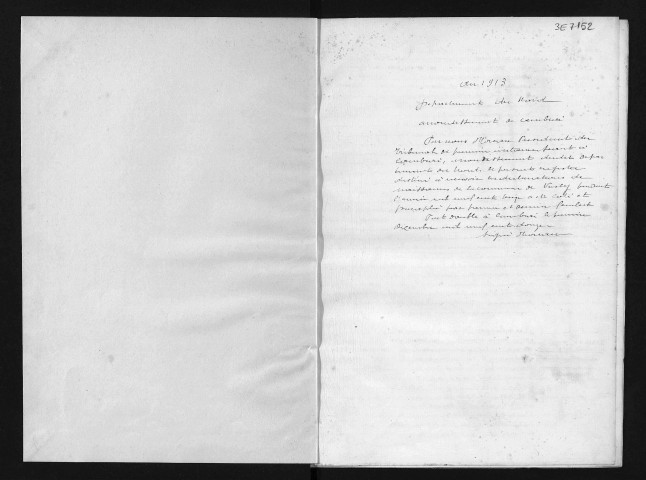 3E7152
An 1913
Département du Nord
arrondissement de Cambrai
Par nous Président du
Tribunal de première instance séant à
Cambrai, arrondissement dudit dépar
tement du Nord, le présent registre
destiné à recevoir les déclarations de
naissances de la commune de pendant
l'année mil neuf cent treize a été coté et
paraphé par premier et dernier feuillet
Fait double à Cambrai le premier
décembre mil neuf cent douze
signé